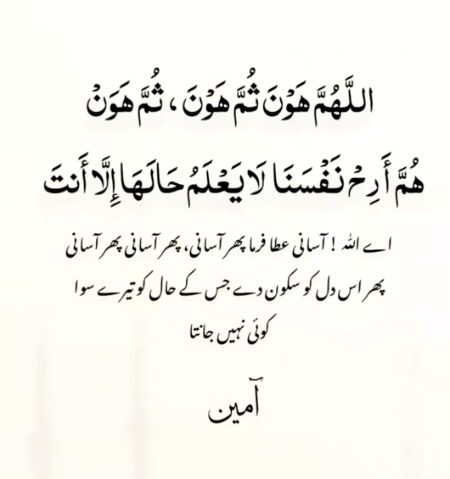 اللَّهُمَّ هَوْنَ ثُمَّ هَوْنَ، ثُمَّ هَوَنْ
هُمَّ أَرِحْ نَفْسَنَا لَا يَعْلَمُ حَالَهَا إِلَّا أَنتَ
اے اللہ ! آسانی عطا فرما پھر آسانی، پھر آسانی پھر آسانی
پھر اس دل کو سکون دے جس کے حال کو تیرے سوا
کوئی نہیں جانتا
آمین